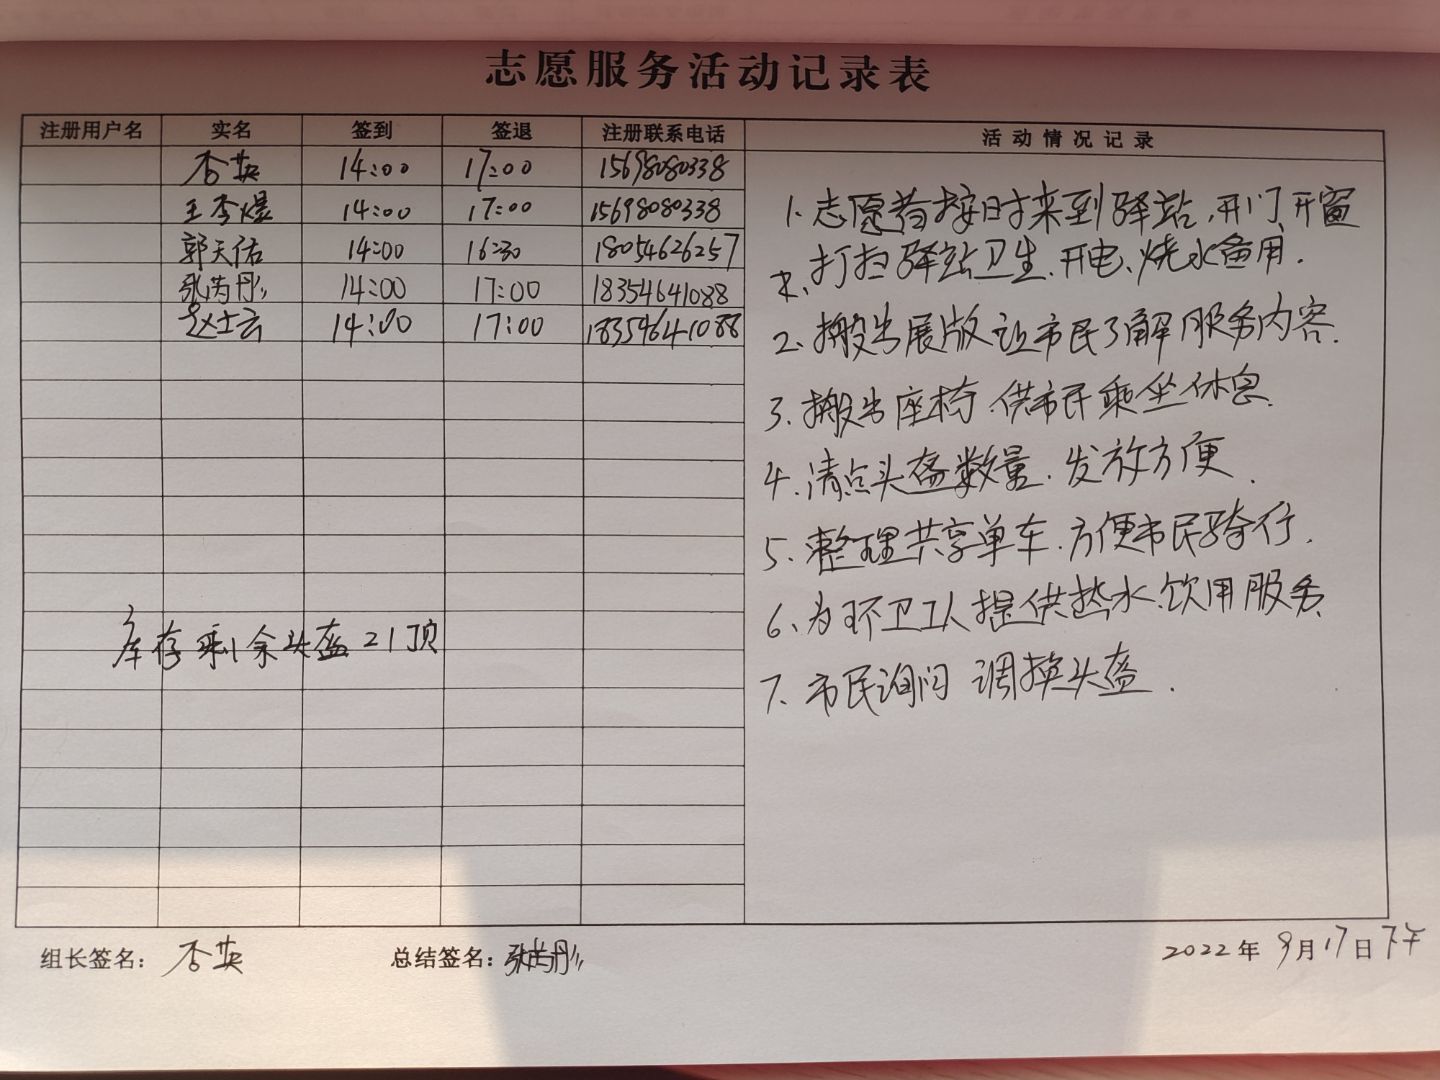 志愿服务活动记录表
注册用户名 实名 签到 签退 注册联系电话 活动情况记录
杏英 14:00 17:00 15698080338
王李煜 14:00 17:00 15698080338
郭天佑 14:00 16:30 18054626257
张芮彤 14:00 17:00 18354641088
赵士云 14:00 17:00 18354641088
1、志愿者按时来到驿站,开门、开窗
打扫驿站卫生、开电、烧水备用.
2、搬出展版 让市民了解服务内容.
3、搬出座椅 供市民乘坐休息.
4、清点头盔数量、发放方便.
5、整理共享单车、方便市民骑行.
6、为环卫工人提供热水、饮用服务.
7、市民询问 调换头盔.
库存剩余头盔21顶
组长签名: 杏英 总结签名: 张芮彤 2022年9月17日下午